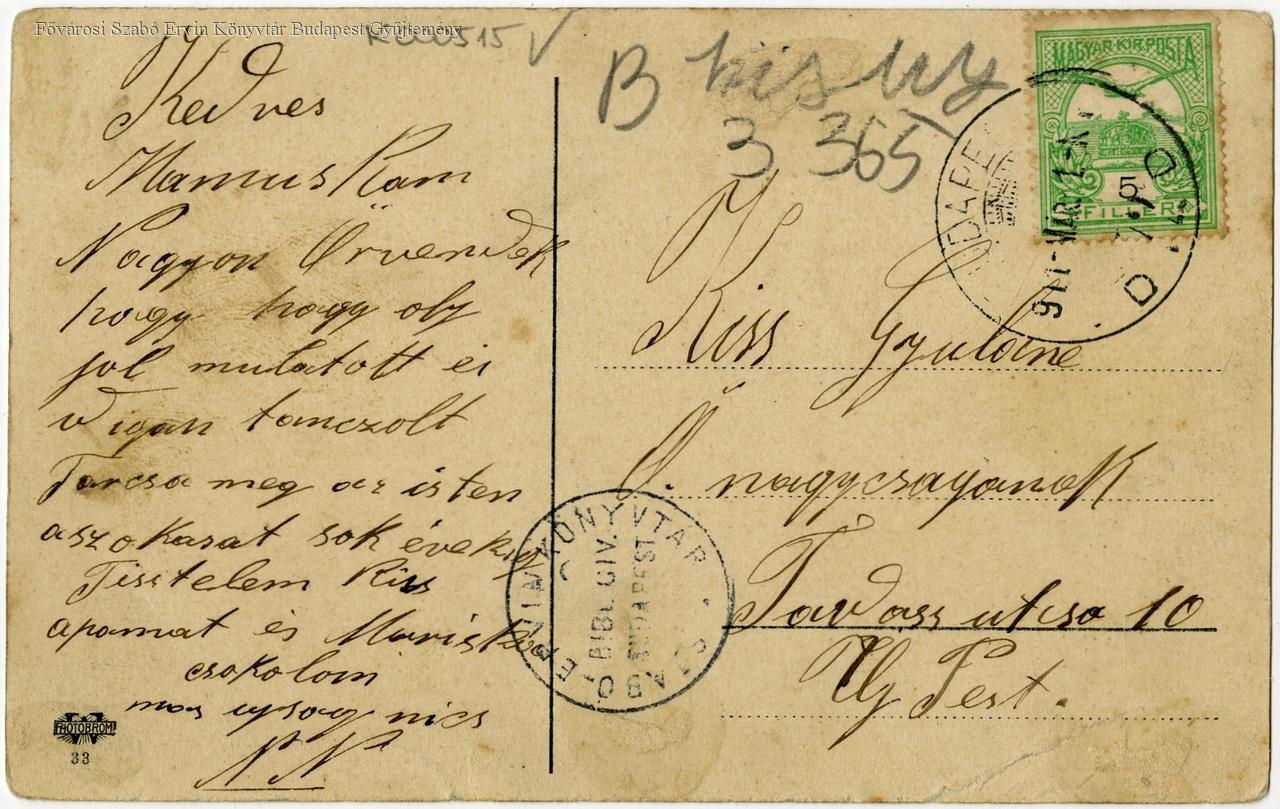 Fővárosi Szabó Ervin Könyvtár Budapest Gyűjtemény
B
3 365
Kedves
Mamuskam
Nagyon Örvendek
hogy hogy oly
jol mulatott és
vigan tanczolt
Tarcsa meg az isten
aszokasat sok évekig
Tisztelem Kiss
apamat és Mariska
csokolom
mas ujsag nics
N N
PHOTOBROM
33
MAGYAR KIR. POSTA
5
FILLER
911 MÁR
Kiss Gyuláné
Ő. nagycsaganak
Tavasz utcsa 10
Uj Pest.
SZABÓ ERVIN KÖNYVTÁR
BIBL. CIV.
BUDAPEST